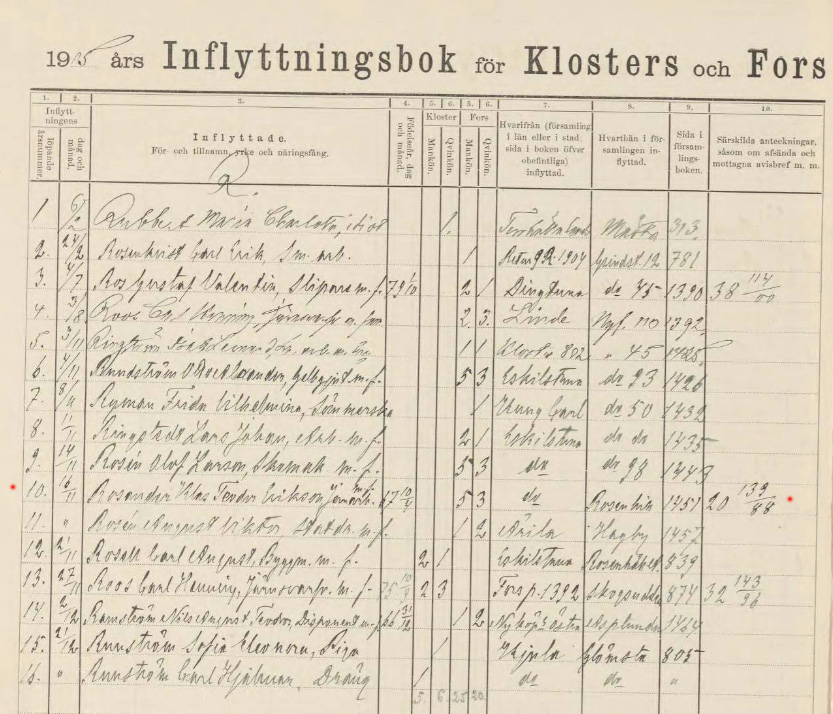 19 års Inflyttningsbok för Klosters och Fors
1. 2. 3. 4. 5. 6. 5. 6. 7. 8. 9. 10.
Inflyttningens
löpande årsnummer.
dag och månad.
Inflyttade.
För- och tillnamn, yrke och näringsfång.
Födelseår, dag och månad.
Kloster Fors
Mankön. Qvinkön. Mankön. Qvinkön.
Hvarifrån (församling i län eller i stad, sida i boken öfver obefintliga) inflyttad.
Hvarthän i församlingen inflyttad.
Sida i församlingsboken.
Särskilda anteckningar, såsom om afsända och mottagna avisbref m. m.
R.
1 Maria Charlotta, 1. 313.
2. 24/2 Rosenkvist Carl Erik, Sm. arb. 1 1907 Grindst. 12 781
3. 4/7 Ros Gustaf Valentin, Slipare m. f. 79 1/10 2 1 Dingtuna do 45 1390 38 114/00
4. 3/8 Roos Carl Henning, m. fam 2. 3. Linde Nyf. 110 1392.
5. 3/11 1 1 Klost. 802 " 45 1425.
6. 4/11 Gelbgjut. m. f. 5 3 Eskilstuna do 93 1426
7. 8/11 Ryman Frida Vilhelmina, Sömmerska 1 Kung Carl do 50 1432
8. 11/11 Ringstedt Lars Johan, Arb. m. f. 2 1 Eskilstuna do do 1435
9. 14/11 Rosén Olof Larson, Skomak m. f. 5 3 do do 98 1443
10. 16/11 Rosander Klas Teodor Erikson, Järnarb. m. f. 67 10/4 5 3 do Rosenhill 1451 20 139/88
11. " Rosén August Viktor, Statdr. m. f. 1 2 Ärila Hagby 1457
12. 21/11 Rosell Carl August, Byggm. m. f. 2 1 Eskilstuna 839
13. 27/11 Roos Carl Henning, Järnsvarfv. m. f. 75 10/9 2 3 Fors p. 1392 874 32 143/96
14. 2/12 Ramström Nils August Teodor, Disponent m. f. 66 31/12 1 2 Asplunda 1464
15. 21/12 Runström Sofia Eleonora, Piga 1 Kjula Glömsta 805
16. " Runström Carl Hjalmar, Dräng 1 do do "
5. 6. 25 20.